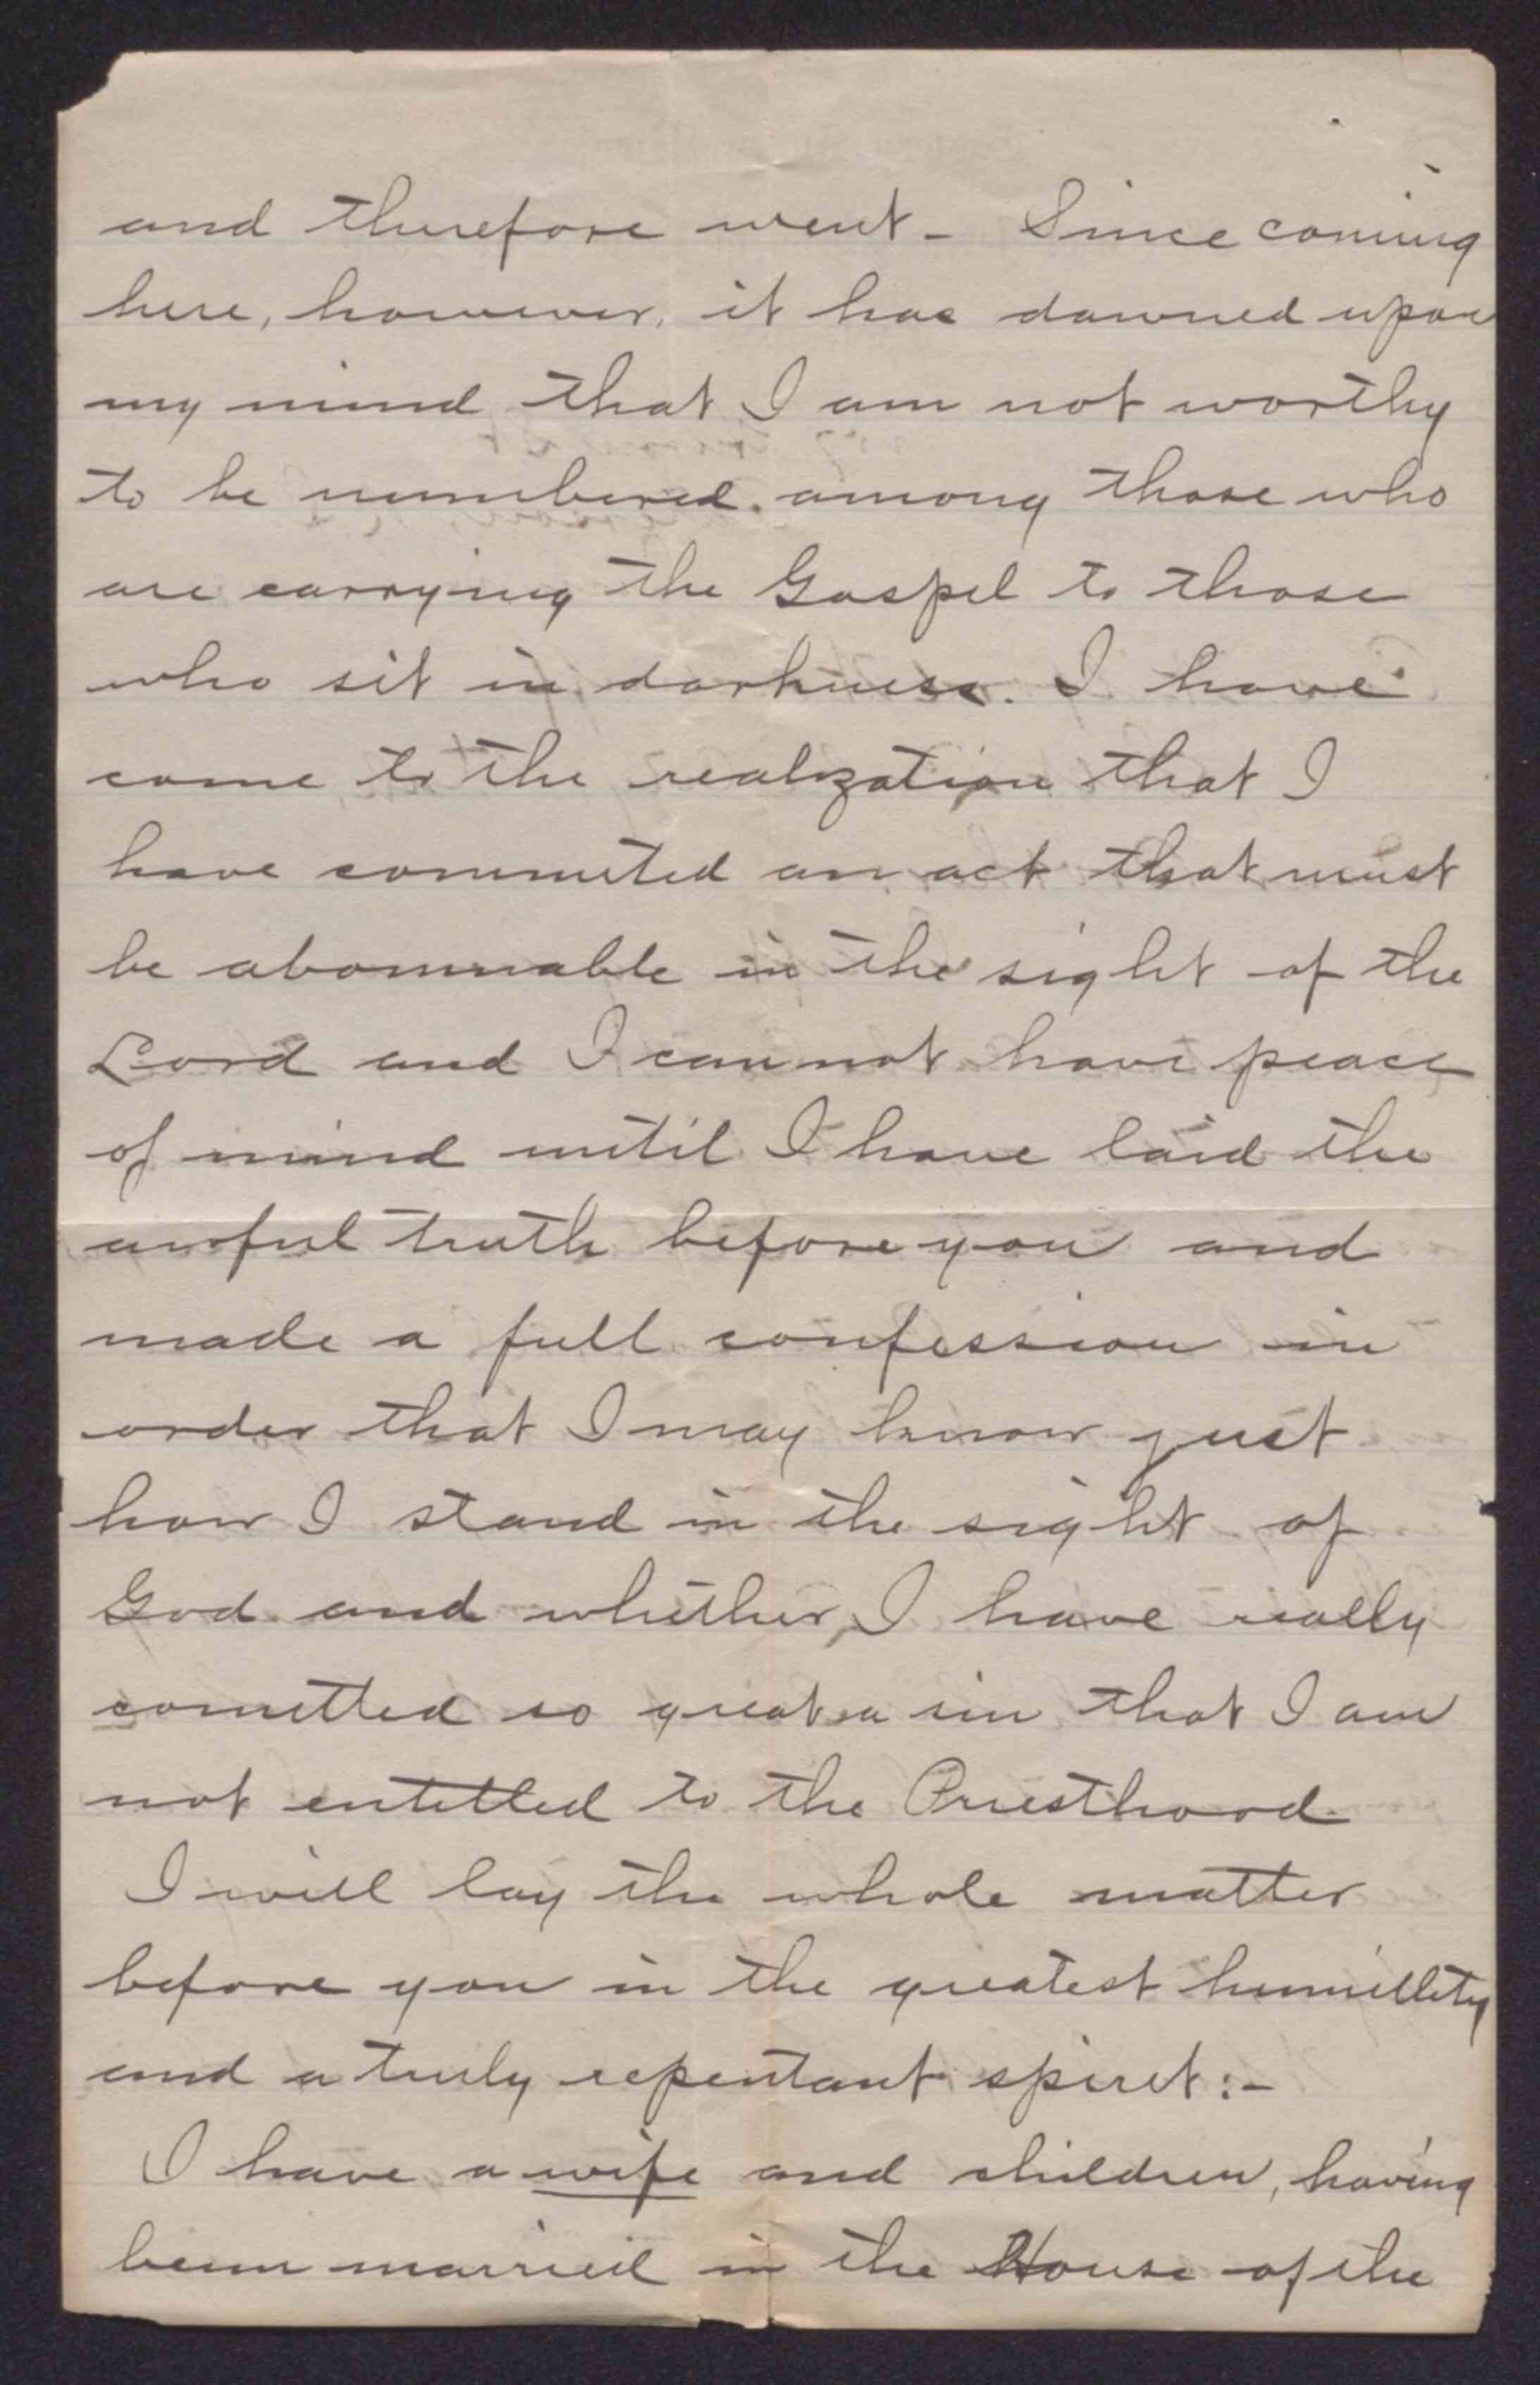 and therefore went - Since coming
here, however, it has dawned upon
my mind that I am not worthy
to be numbered among those who
are carrying the Gospel to those
who sit in darkness. I have
come to the realization that I
have commited an act that must
be abominable in the sight of the
Lord and I can not have peace
of mind until I have laid the
awful truth before you and
made a full confession in
order that I may know just
how I stand in the sight of
God and whether, I have really
comitted so great a sin that I am
not entitled to the Priesthood
I will lay the whole matter
before you in the greatest humillity
and a truly repentant spirit:-
I have a wife and children, having
been married in the House of the